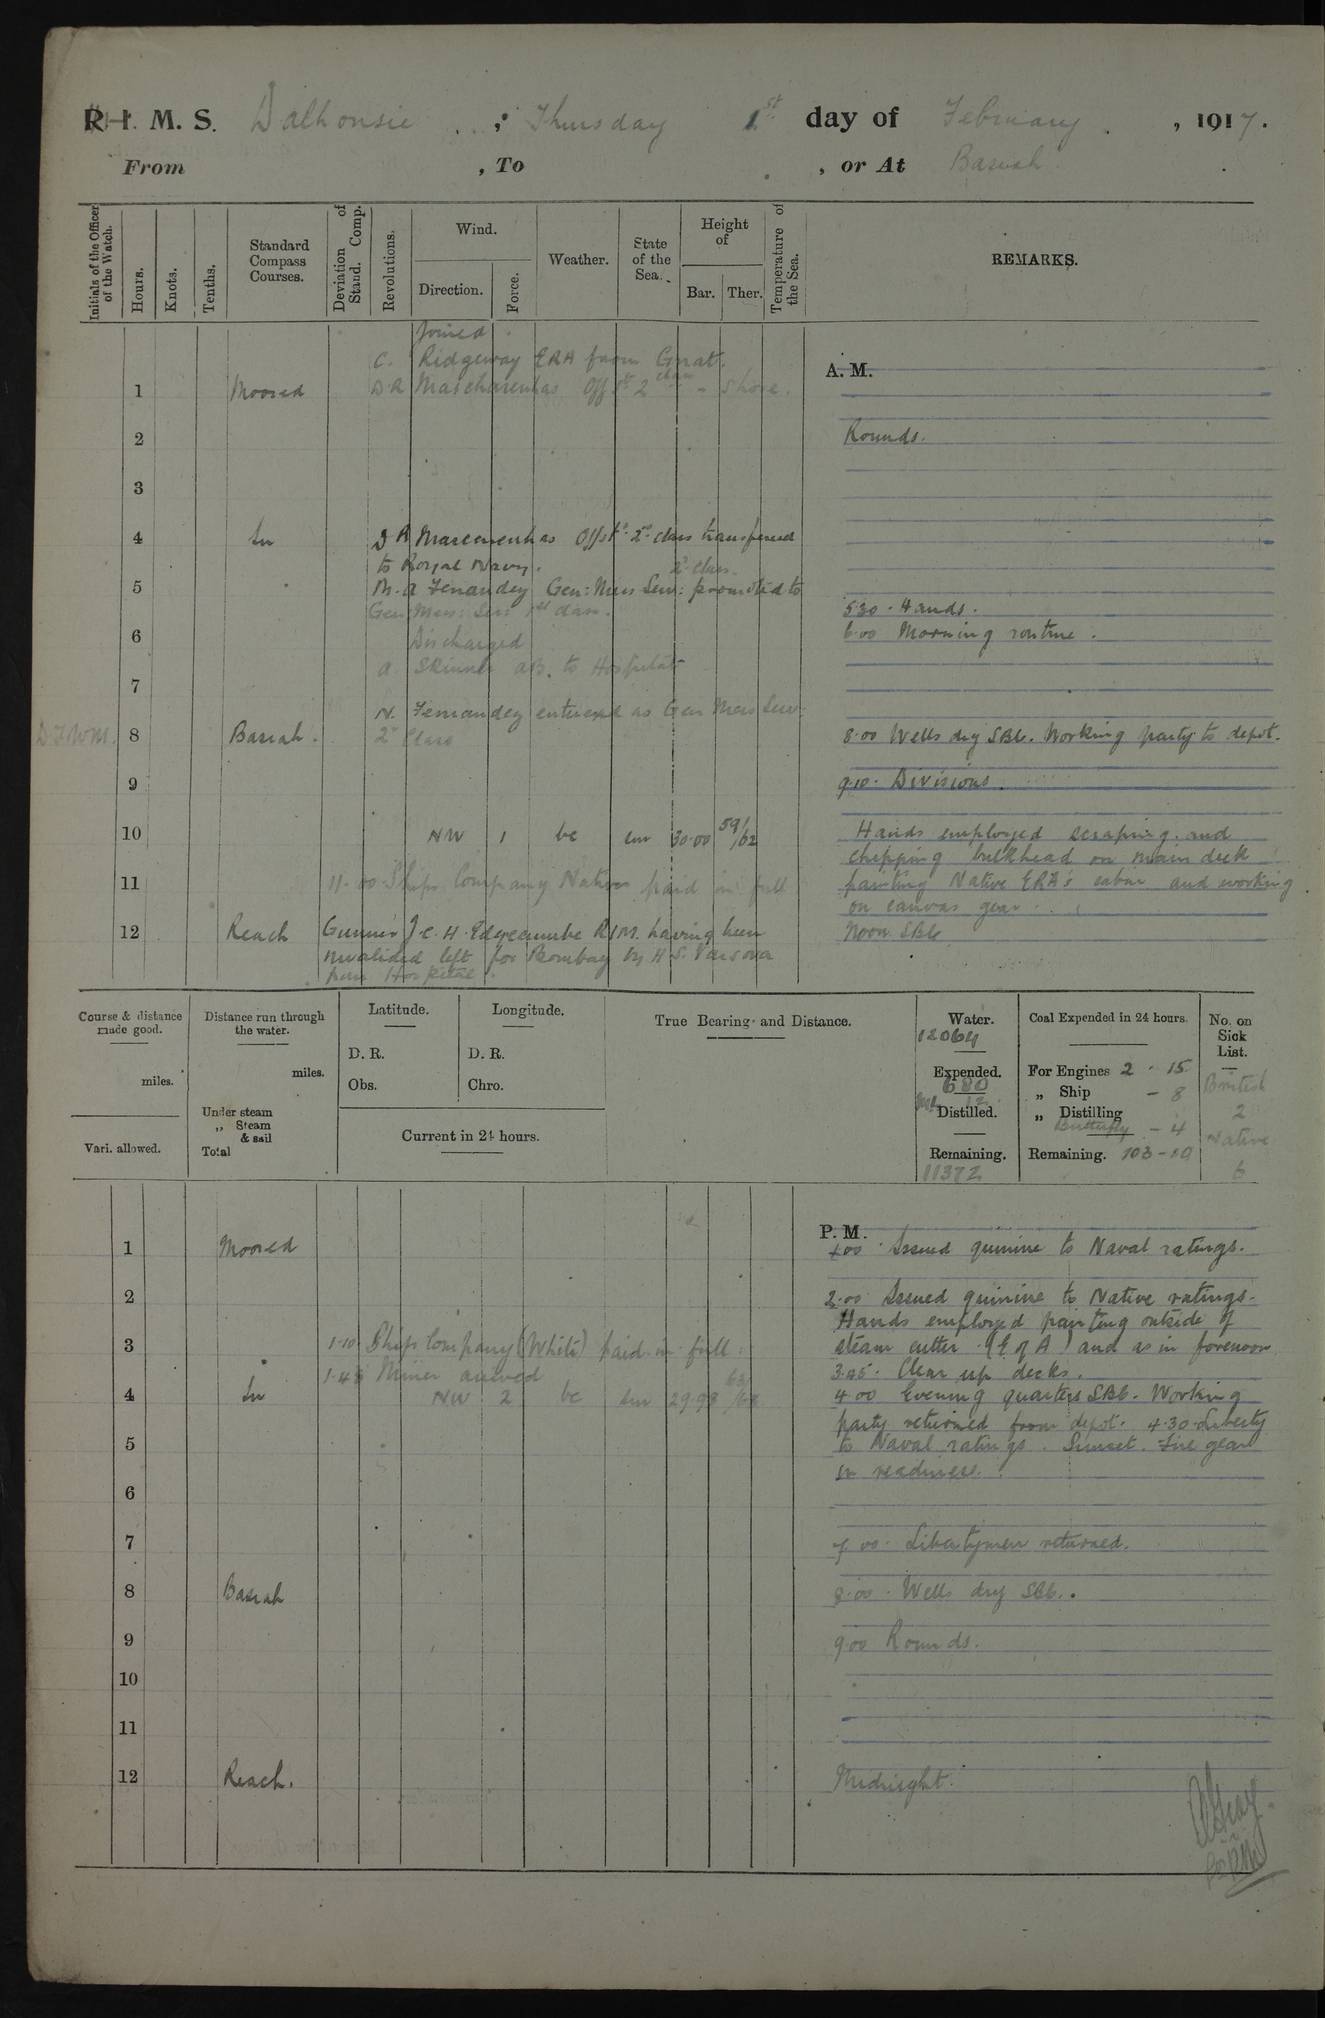 R. I. M. S. Dalhousie , Thursday 1st day of February , 1917.
From , To , or At Basrah
Initials of the Officer of the Watch.
Hours.
Knots.
Tenths.
Standard Compass Courses.
Deviation of Stand. Comp.
Revolutions.
Wind.
Direction.
Force.
Weather.
State of the Sea.
Height of
Bar. Ther.
Temperature of the Sea.
REMARKS.
Joined
C. Ridgeway ERA from Gnat.
A. M.
1 Moored D.R Mascharenhas Off St 2 class - Shore.
2 Rounds.
3
4 In D R Mascarenhas Offst: 2nd class transferred
to Royal Navy.
2nd class.
5 M. A Fenandey Gen: Mess Serv: promoted to
Gen: Mess: Ser: 1st class.
5.30 - Hands.
6 6.00 Morning routine.
Discharged
A. Skinner AB. to Hospital
7
N. Fernandey entered as Gen Mess Serv:
8 Basrah. 2nd Class
8.00 Wells dry SBb. Working party to depot.
9 9.10. Divisions.
10 NW 1 bc sm 30.00 59/62 Hands employed scraping and
chipping bulkhead on main deck
11 11.00 Ships Company Natives paid in full
painting Native ERA's cabin and working
on canvas gear.
12 Reach Gunner J. C. H. Edgecumbe RIM. having been
Noon SBb
invalided left for Bombay by H.S. Varsova
from Hospital.
Course & distance made good.
miles.
Vari. allowed.
Distance run through the water.
miles.
Under steam
„ Steam & sail
Total
Latitude.
D. R.
Obs.
Longitude.
D. R.
Chro.
Current in 24 hours.
True Bearing and Distance.
Water.
12064
Expended.
680
12
Distilled.
Remaining.
11372
Coal Expended in 24 hours.
For Engines 2 . 15
„ Ship - 8
„ Distilling
Butterfly - 4
Remaining. 103 - 10
No. on Sick List.
British
2
Native
6
P. M.
1 Moored 1.00 Issued quinine to Naval ratings.
2 2.00 Issued quinine to Native ratings.
Hands employed painting outside of
3 1.10. Ships Company (White) paid in full.
steam cutter (G of A) and as in forenoon
1.45 Miner arrived
3.45. Clear up decks.
4 In NW 2 bc sm 29.98 63/68 4.00 Evening quarters SBb. Working
party returned from depot. 4.30. Liberty
5 to Naval ratings. Sunset. Fire gear
in readiness.
6
7 7.00. Libertymen returned.
8 Basrah 8.00. Wells dry SBb.
9 9.00 Rounds.
10
11
12 Reach. Midnight.